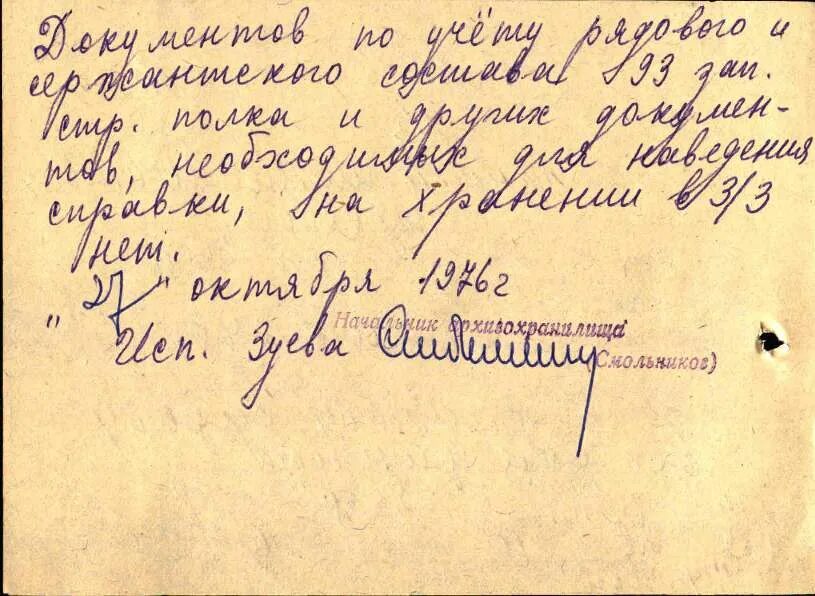 Документов по учёту рядового и
сержантского состава 193 зап.
стр. полка и других докумен-
тов, необходимых для наведения
справки, на хранении в 3/3
нет.
"27" октября 1976 г
Начальник архивохранилища
Исп. Зуева
(Смольников)